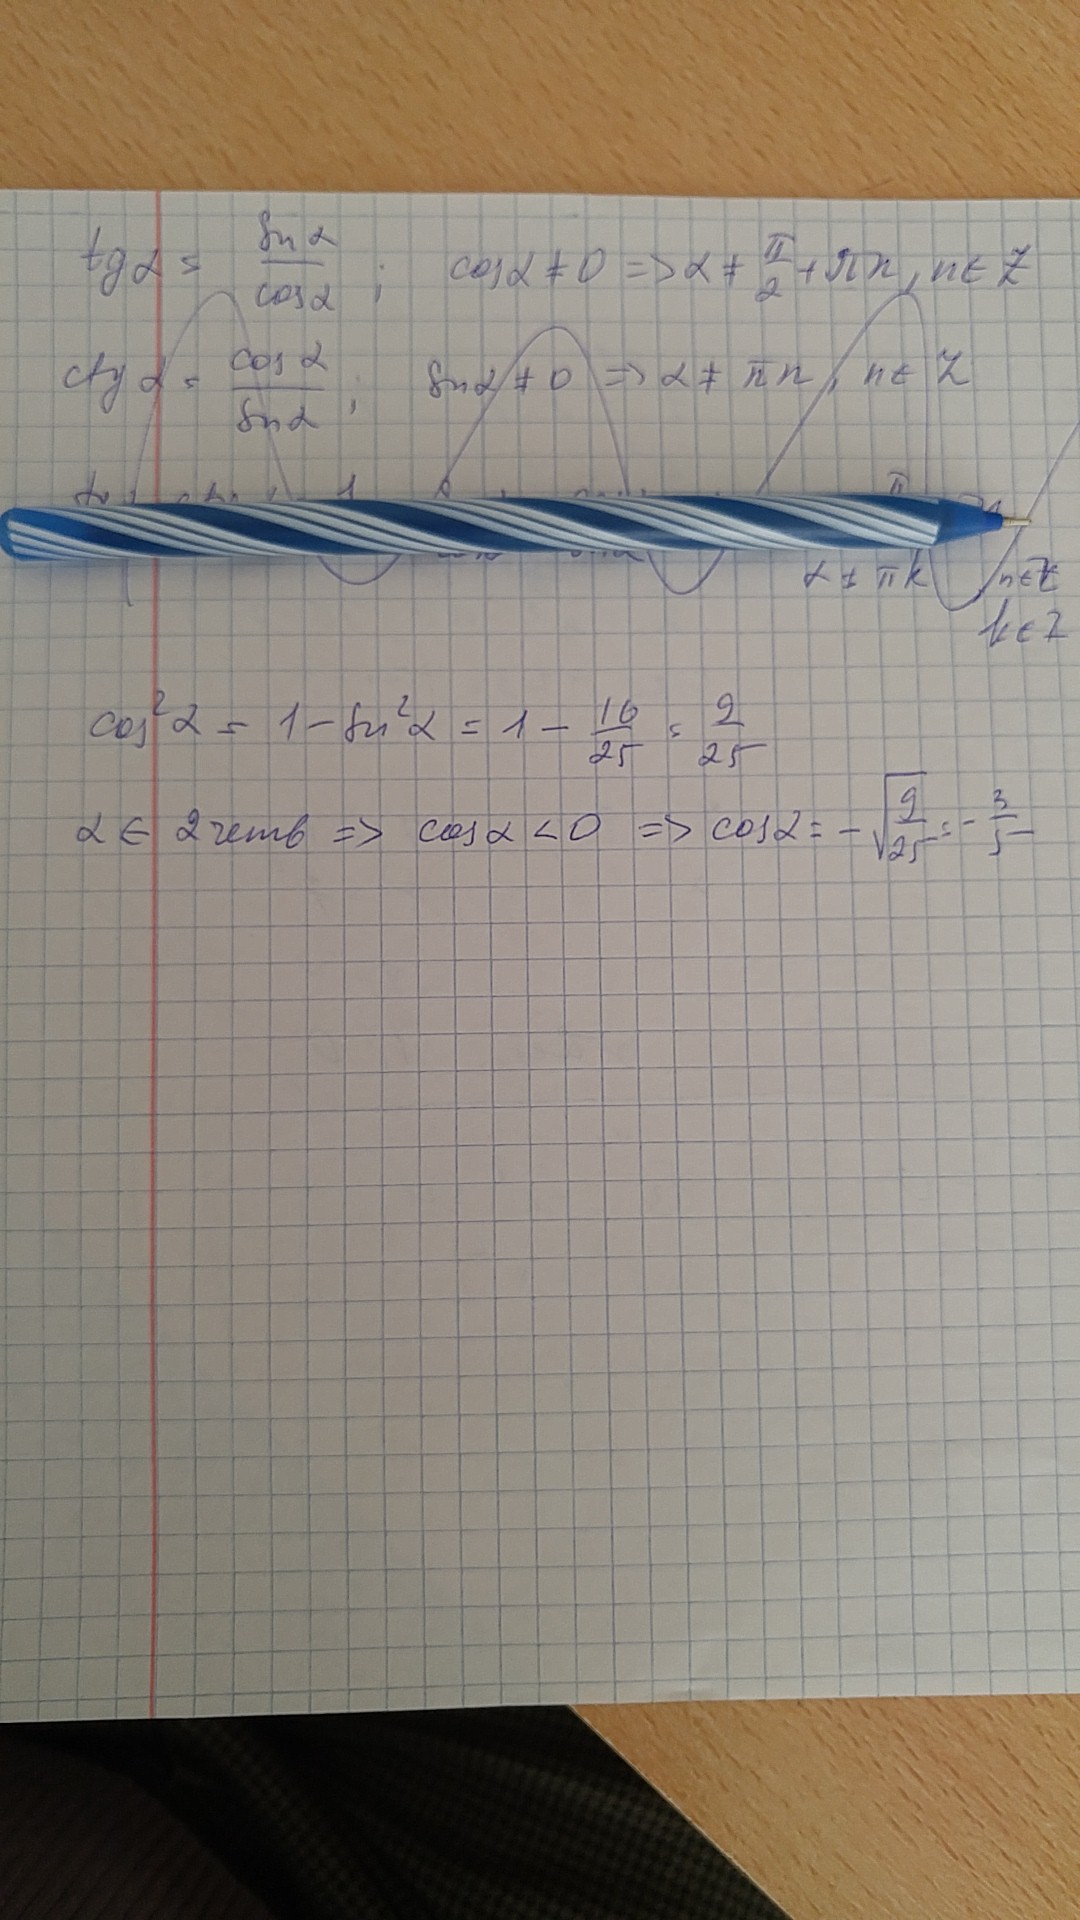 tg α = sin α / cos α ; cos α ≠ 0 => α ≠ π/2 + πn, n ∈ Z
ctg α = cos α / sin α ; sin α ≠ 0 => α ≠ πn, n ∈ Z
α ≠ πk n ∈ Z
k ∈ Z
cos²α = 1 - sin²α = 1 - 16/25 = 9/25
α ∈ 2 четв => cos α < 0 => cos α = -√9/25 = -3/5